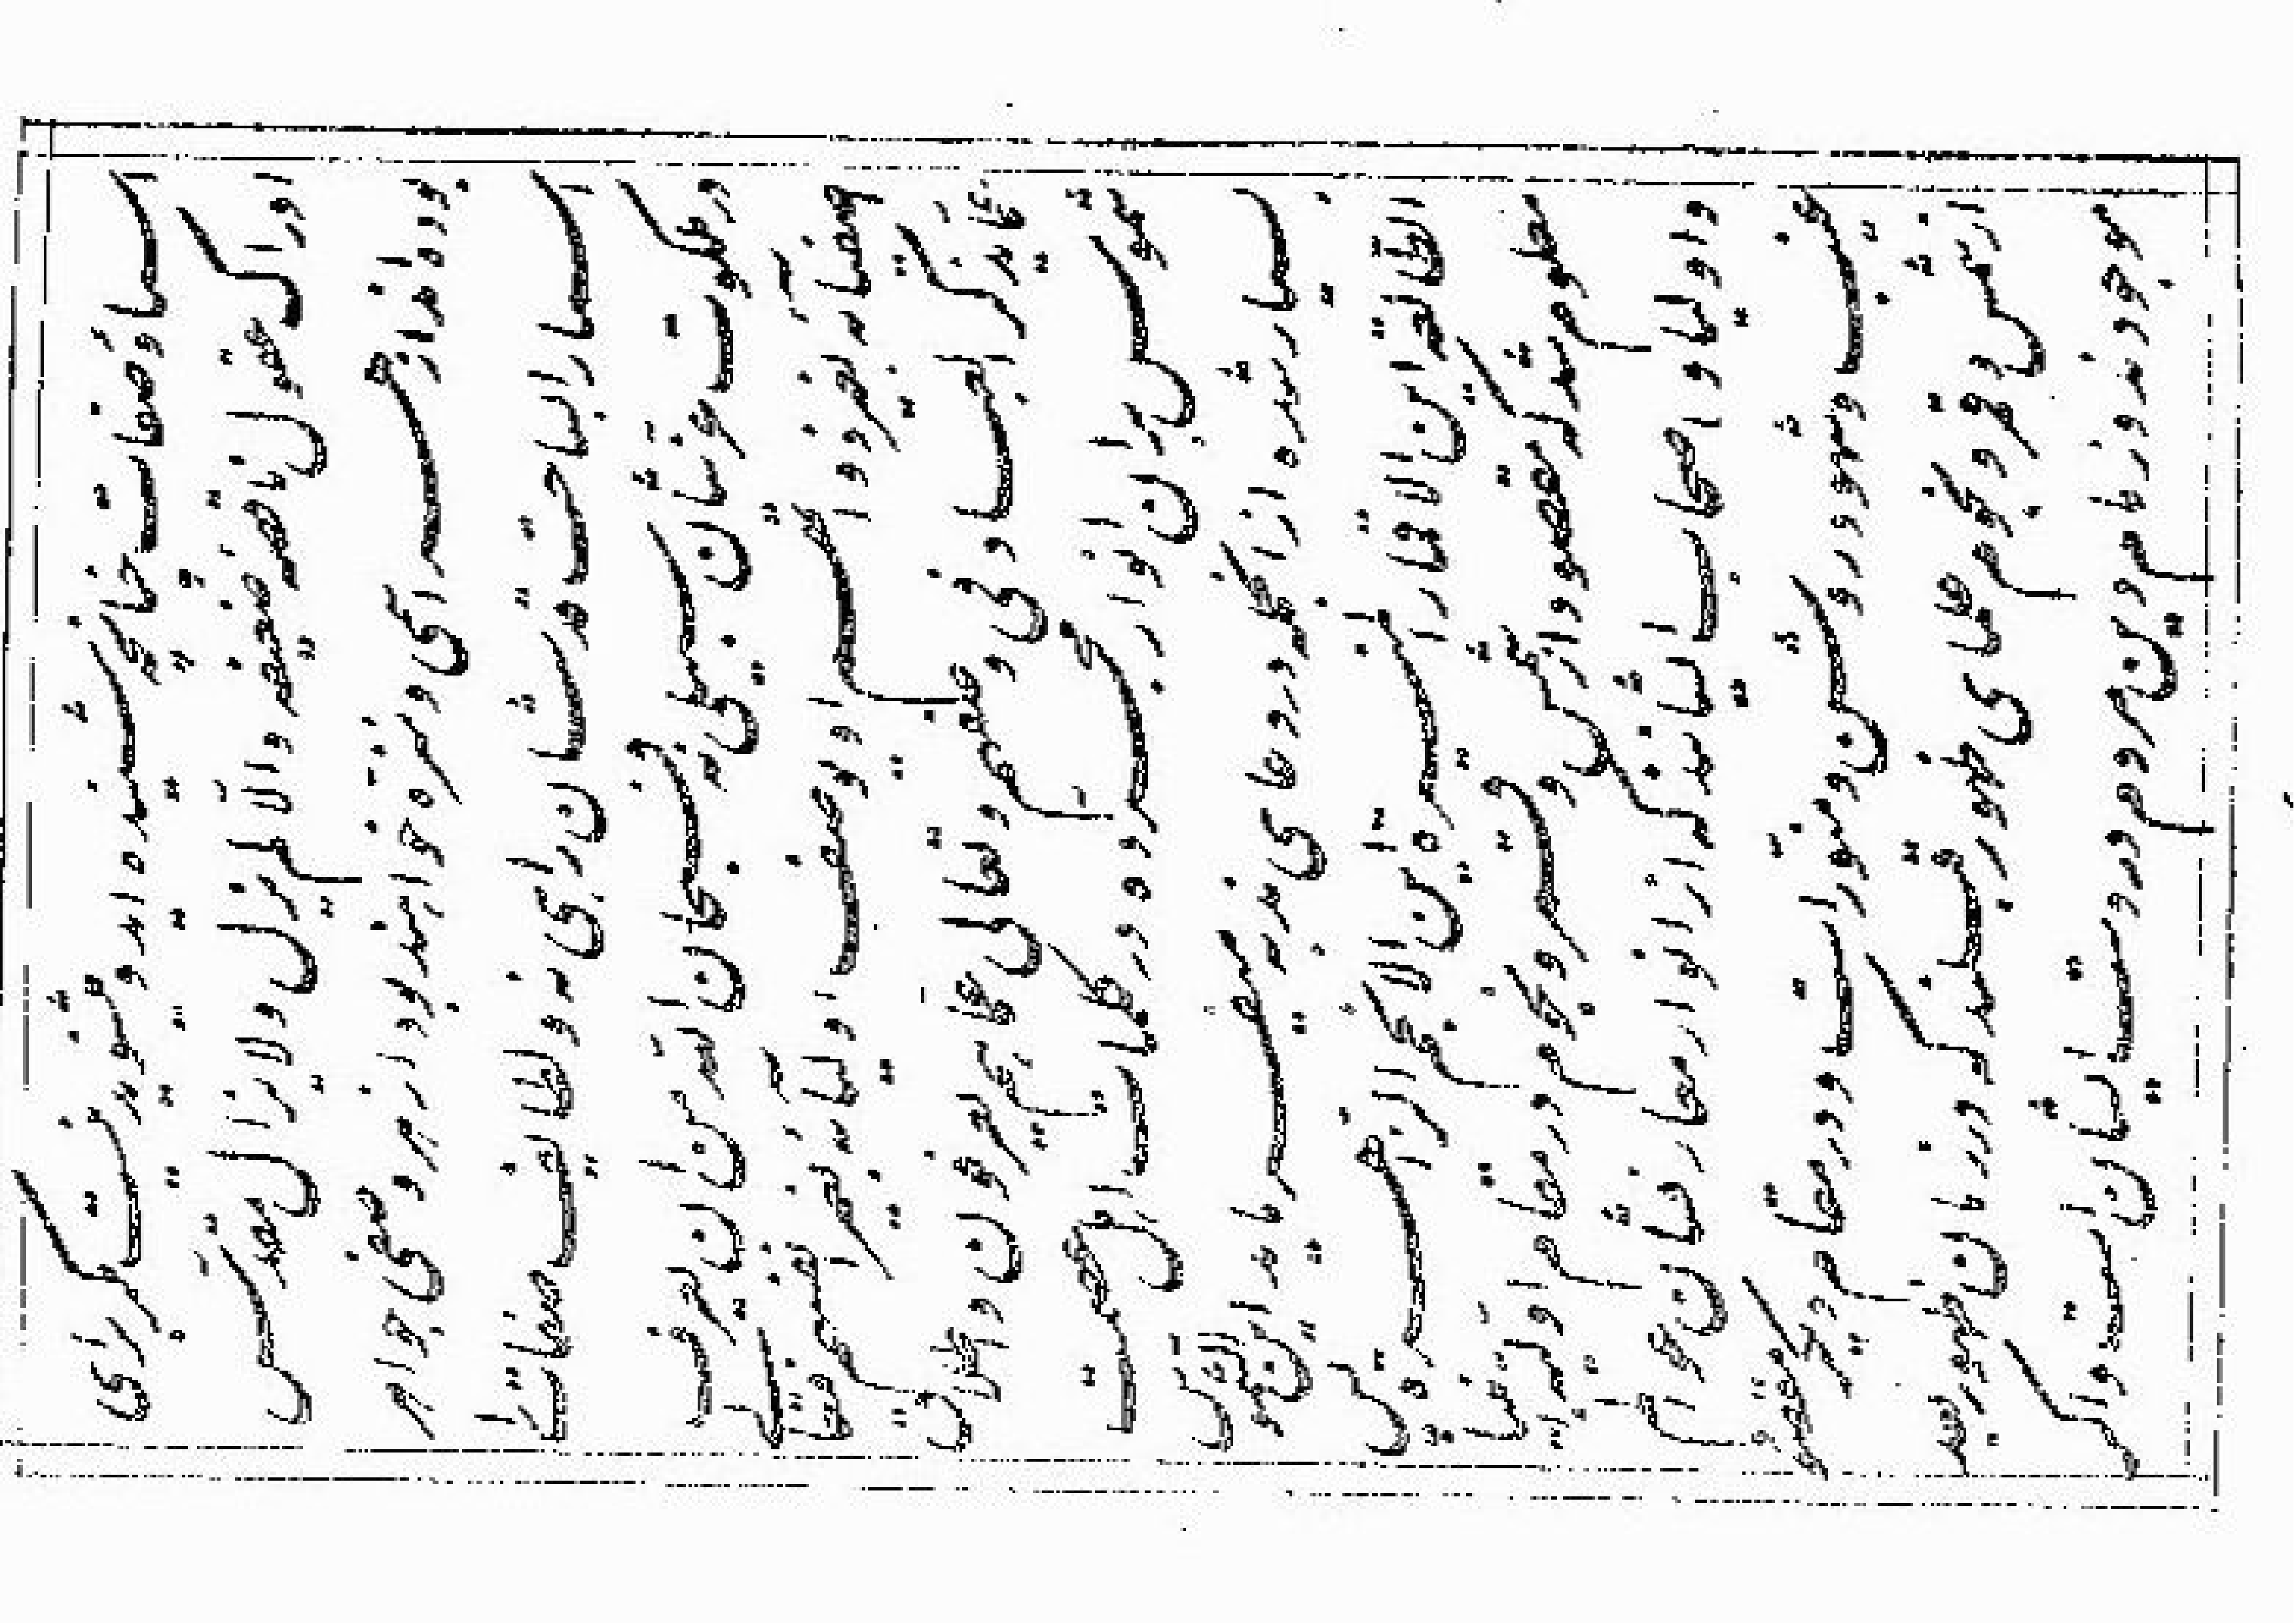 اسما و صفات چنانچه شنیده اید و میشنوید نیست مگر برای
ادراک عقول ناقصه ضعیفه والا لم یزل ولا یزال مقدس
بوده اند از هر اسمی و منزه خواهند بود از هر وصفی جواهر
اسما را بساحت قدسشان راهی نه و لطائف صفات را
در ملکوت عزشان سبیلی نه فسبحان الله من ان یعرف
اصفیائه بغیر ذواتهم او یوصف اولیائه بغیر انفسهم فتعالی
عما یذکر العباد فی وصفهم و تعالی عما هم یعرفون و اطلاق
شموس بر آن انوار مجرده در کلمات اهل عصمت
بسیار شده از آنجمله در دعای ندبه میفرماید این الشموس
الطالعه این الاقمار المنیره این الانجم الزاهره پس
معلوم شد که مقصود از شمس و قمر و نجوم در مقام اولیه انبیا
و اولیا و اصحاب ایشانند که از انوار معارفشان عوالم
غیب و شهود روشن و منور است و در مقام دیگر مقصود
از شمس و قمر و نجوم علمای ظهور قبلند که در زمان ظهور بعد
موجودند و زمام دین مردم در دست ایشان است و اگر